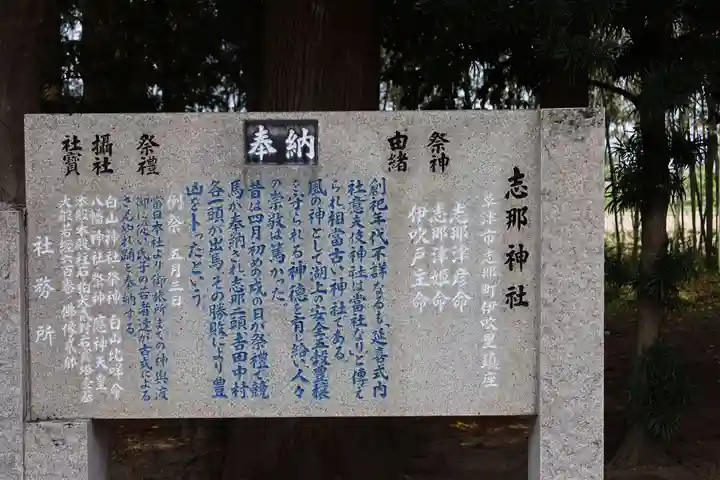 志那神社
草津市志那町伊吹里鎮座
祭神
志那津彦命
志那津姫命
伊吹戸主命
由緒
創祀年代不詳なるも、延喜式内
社意夫伎神社は當社なりと傳え
られ相當古い神社である。
風の神として湖上の安全五穀豊穣
を守られる神徳を有し給い人々
の崇敬は篤かった
昔は四月初めの戌の日が祭禮で競
馬が奉納され志那二頭吉田中村
各一頭が出馬、その勝敗により豊
凶を卜ったという
奉納
祭禮
例祭 五月三日
當日本社より御旅所までの神輿渡
御に從い氏子の若者達が古式による
さんやれ踊を奉納する。
攝社
白山神社 祭神 白山比咩命
八幡神社 祭神 應神天皇
社寶
大般若経六百巻
社務所